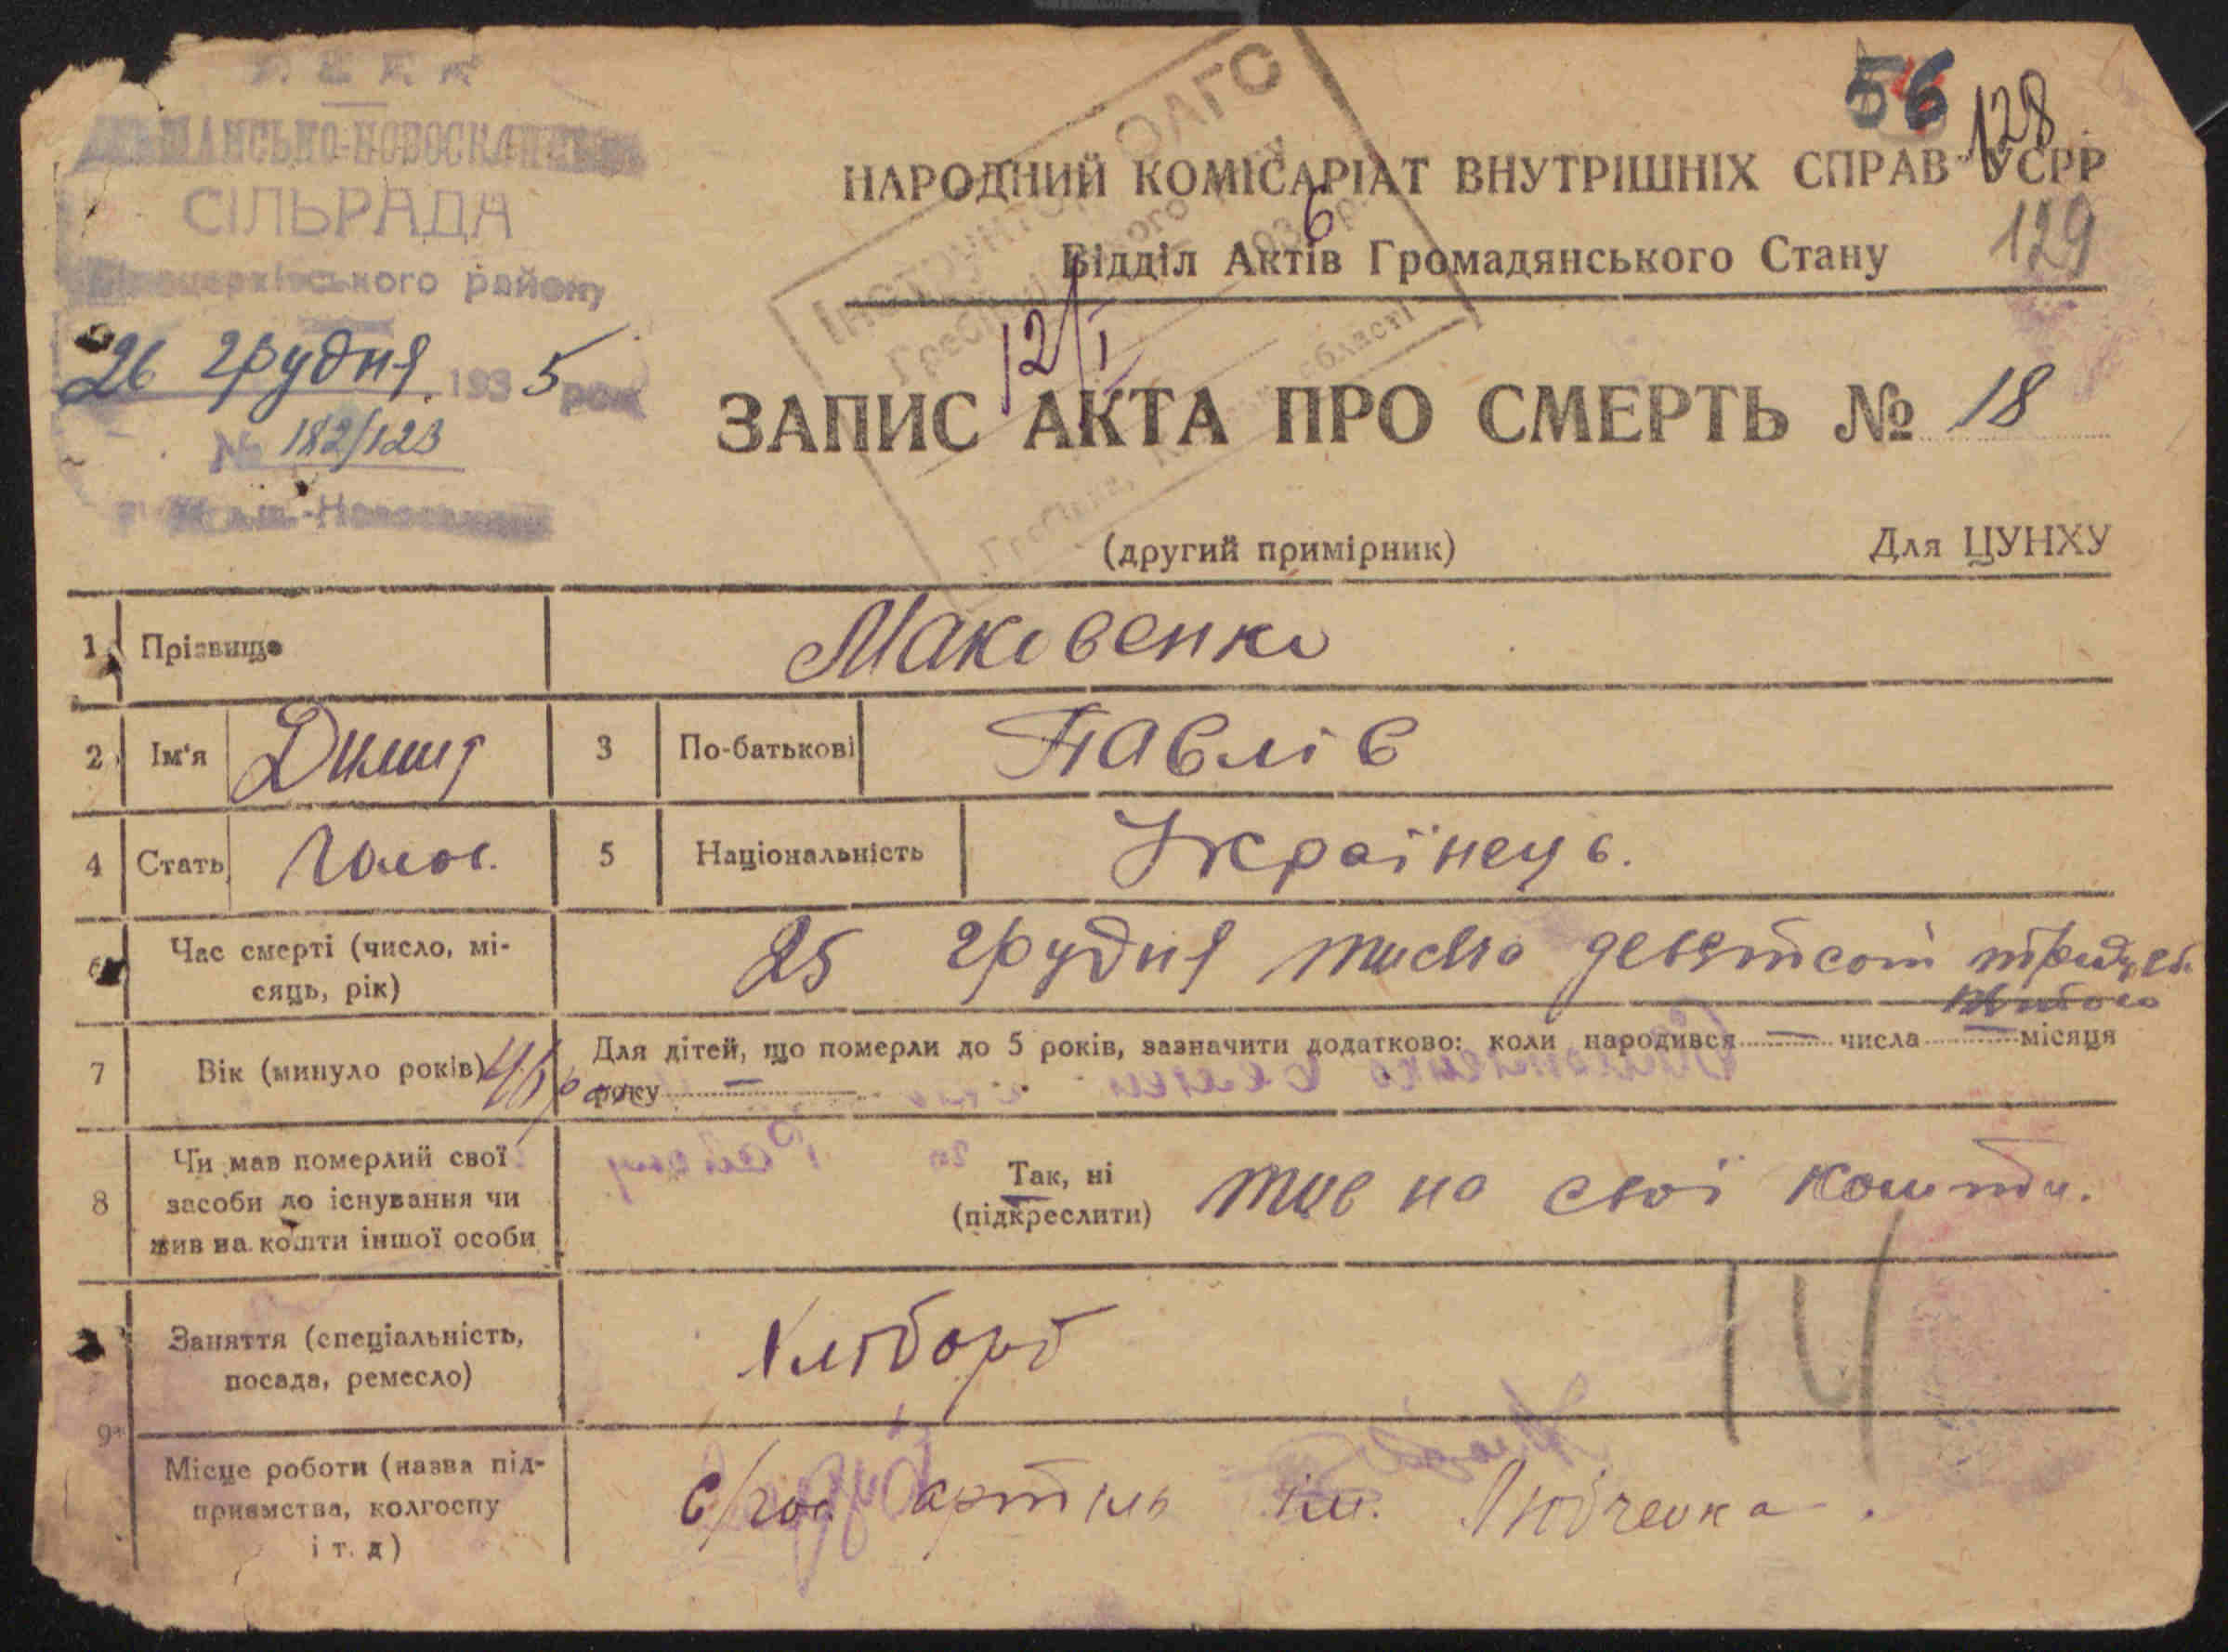 СІЛЬРАДА
району
26 грудня 1935 рок
№ 182/123
56
128
129
ІНСПЕКТОР ОАГС
6
12/I
області
НАРОДНИЙ КОМІСАРІАТ ВНУТРІШНІХ СПРАВ УСРР
Відділ Актів Громадянського Стану
ЗАПИС АКТА ПРО СМЕРТЬ № 18
(другий примірник)
Для ЦУНХУ
1 Прізвище Маковенко
2 Ім'я Димид 3 По-батькові Павлів
4 Стать Чолов. 5 Національність Українець.
6 Час смерті (число, мі-
сяць, рік) 25 грудня тисяча девятсот тридцять
пятого
7 Вік (минуло років) Для дітей, що померли до 5 років, зазначити додатково: коли народився — числа — місяця
року —
8 Чи мав померлий свої
засоби до існування чи
жив на кошти іншої особи
Так, ні
(підкреслити)
жив на свої кошти.
Заняття (спеціальність,
посада, ремесло) Хлібороб
14
9
Місце роботи (назва під-
приємства, колгоспу
і т. д) с/гос артіль ім. Любченка.